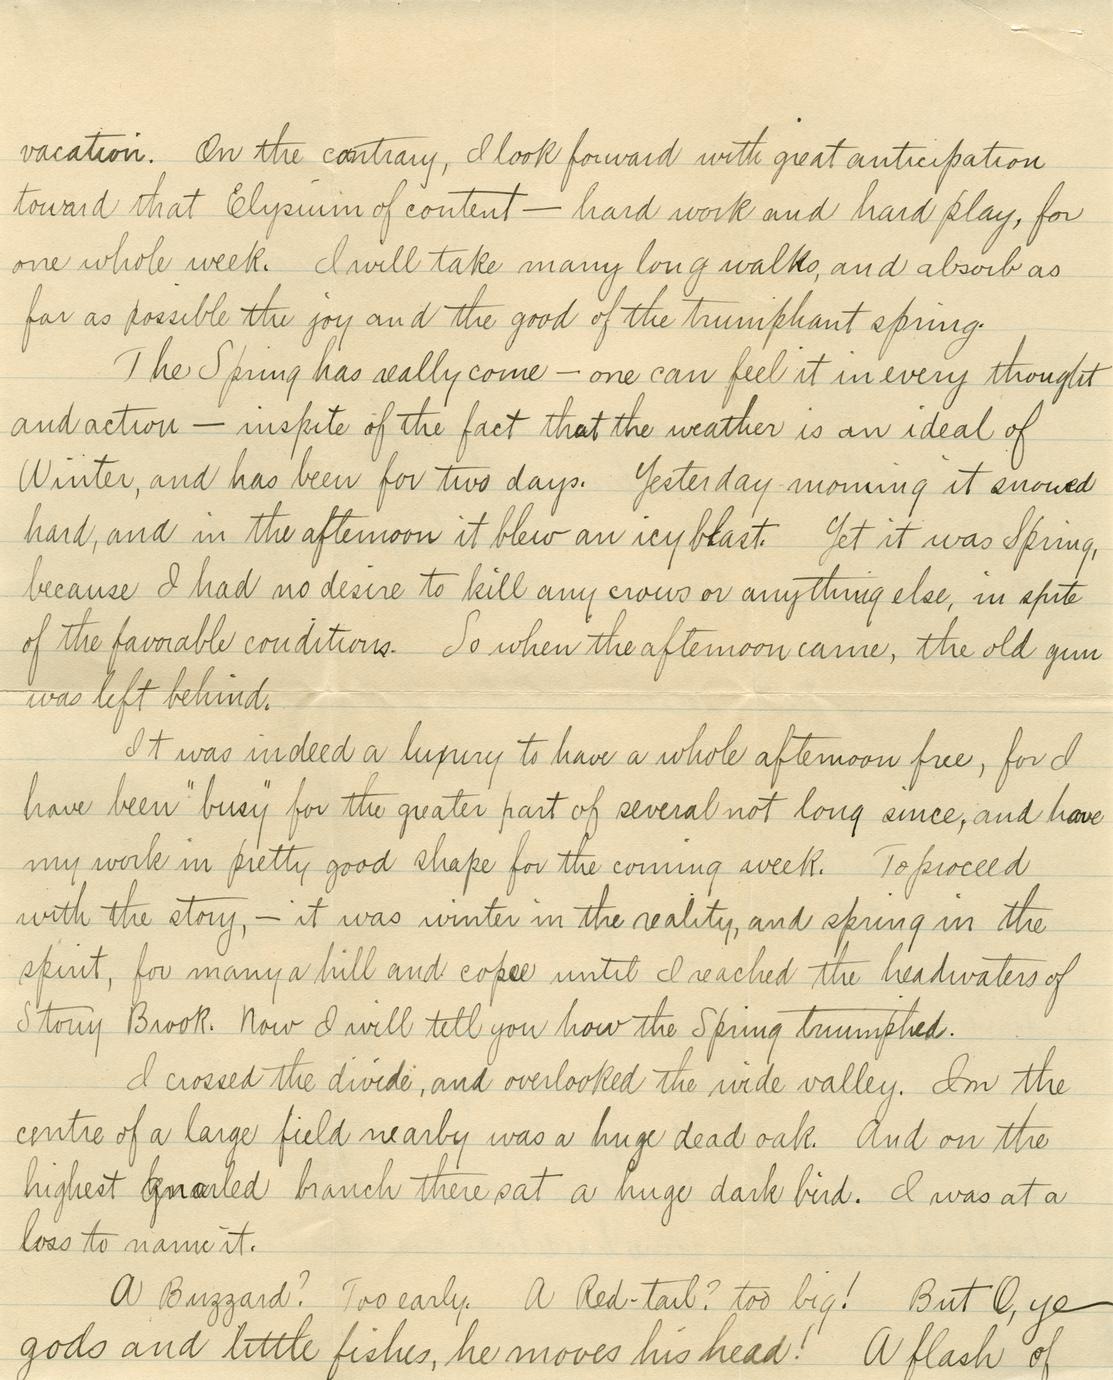 vacation. On the contrary, I look forward with great anticipation
toward that Elysium of content — hard work and hard play, for
one whole week. I will take many long walks, and absorb as
far as possible the joy and the good of the trumphant spring.
The Spring has really come — one can feel it in every thought
and action — inspite of the fact that the weather is an ideal of
Winter, and has been for two days. Yesterday morning it snowed
hard, and in the afternoon it blew an icy blast. Yet it was Spring,
because I had no desire to kill any crows or anything else, in spite
of the favorable conditions. So when the afternoon came, the old gun
was left behind.
It was indeed a luxury to have a whole afternoon free, for I
have been "busy" for the greater part of several not long since, and have
my work in pretty good shape for the coming week. To proceed
with the story, — it was winter in the reality, and spring in the
spirit, for many a hill and copse until I reached the headwaters of
Stony Brook. Now I will tell you how the Spring triumphed.
I crossed the divide, and overlooked the wide valley. In the
centre of a large field nearby was a huge dead oak. And on the
highest gnarled branch there sat a huge dark bird. I was at a
loss to name it.
A Buzzard? Too early. A Red-tail? too big! But O, ye
gods and little fishes, he moves his head! A flash of